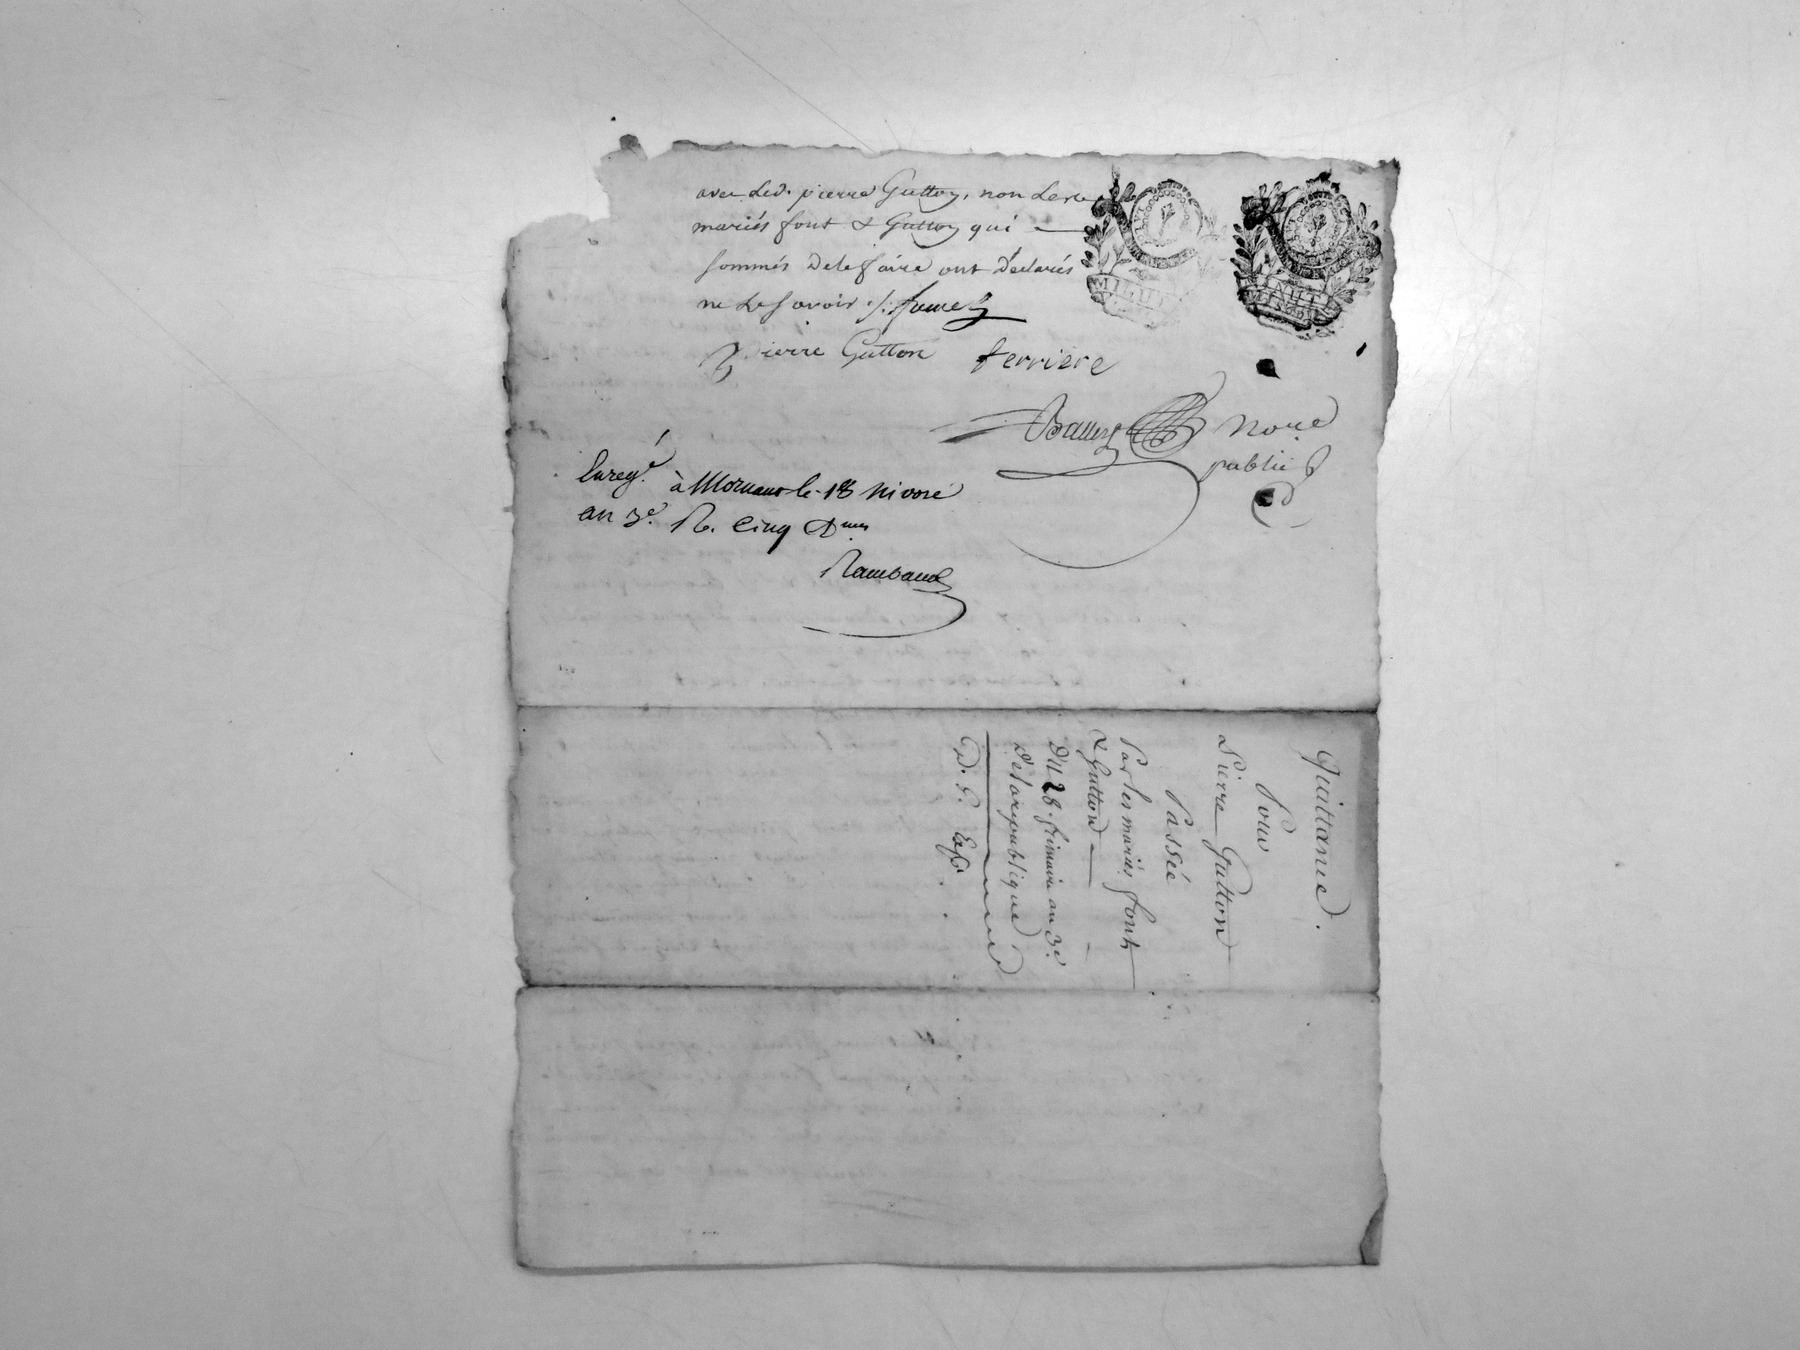 avec led. pierre Gutton, non les
mariés font & Gutton qui
sommés de le faire ont déclarés
ne le savoir ·/·
Pierre Gutton ferriere
Nore
public
Enregé. à Mornant le 18 nivose
an 3e. R. Cinq
Rambaud
Quittance.
Pour
Pierre Gutton
Passée
Par les mariés font
& Gutton
Du 28. frimaire an 3e.
De la republique